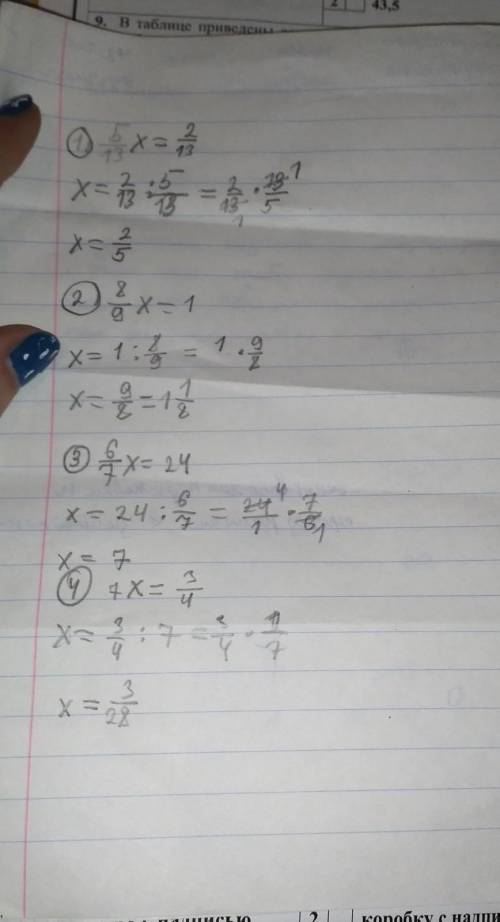 2 43,5
9. В таблице приведены
① 5/13 x = 2/13
x = 2/13 : 5/13 = 2/13 1 · 13 1/5
x = 2/5
② 8/9 x = 1
x = 1 : 8/9 = 1 · 9/8
x = 9/8 = 1 1/8
③ 6/7 x = 24
x = 24 : 6/7 = 24 4/1 · 7/6 1
x = 7
④ 7x = 3/4
x = 3/4 : 7 = 3/4 · 1/7
x = 3/28
2 коробку с надпи